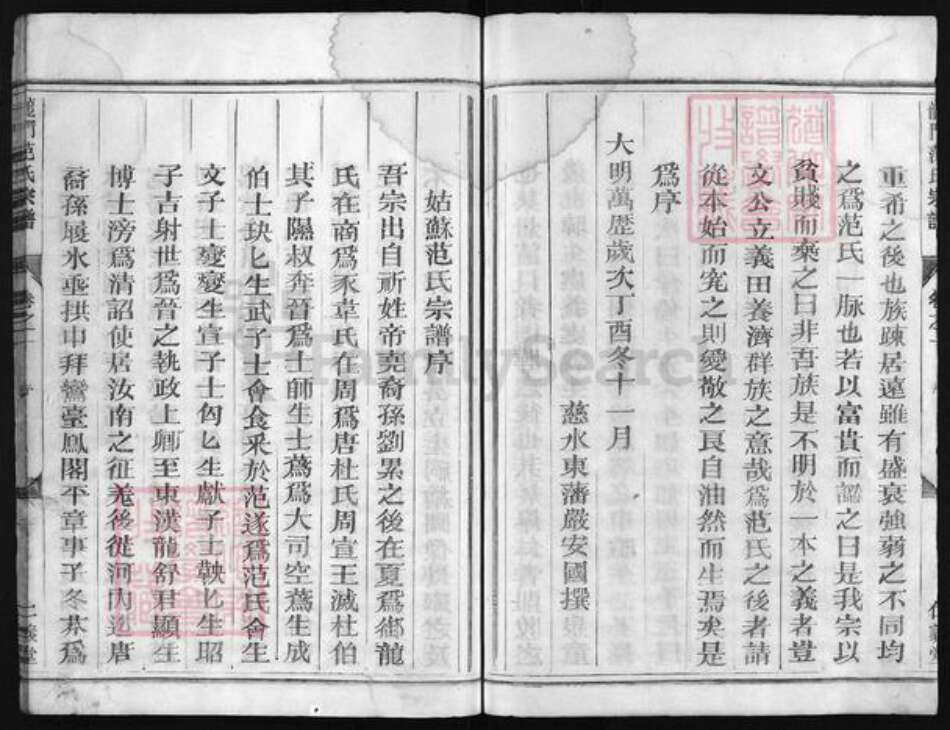 重希之後也族疎居遠雖有盛衰強弱之不同均
之爲范氏一脉也若以富貴而謟之曰是我宗以
貧賤而棄之曰非吾族是不明於一本之義者豈
文公立義田養濟群族之意哉爲范氏之後者請
從本始而究之則愛敬之良自油然而生焉矣是
爲序
大明萬歷歲次丁酉冬十一月
慈水東藩嚴安國撰
姑蘇范氏宗譜序
吾宗出自祈姓帝堯裔孫劉累之後在夏爲御龍
氏在商爲豕韋氏在周爲唐杜氏周宣王滅杜伯
其子隰叔奔晉爲士師生士蔿爲大司空蔿生成
伯士玦匕生武子士會食采於范遂爲范氏會生
文子士燮燮生宣子士匄匕生獻子士鞅匕生昭
子吉射世爲晉之執政上卿至東漢龍舒君顯生
博士滂爲清詔使居汝南之征羌後徙河內迄唐
裔孫履氷垂拱中拜鸞臺鳳閣平章事子冬芬爲
龍門范氏宗譜
卷之一
仁義堂
FamilySearch